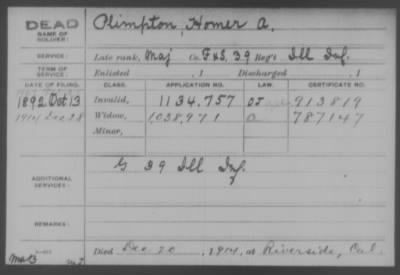 DEAD
NAME OF SOLDIER: Plimpton, Homer A.
SERVICE: Late rank, Maj Co. F&S, 39 Reg't Ill Inf.
TERM OF SERVICE: Enlisted , 1 Discharged , 1
DATE OF FILING. CLASS. APPLICATION NO. LAW. CERTIFICATE NO.
1892 Oct 13 Invalid, 1134.757 913819
1914 Dec 28 Widow, 1038,971 787147
Minor,
ADDITIONAL SERVICES: G 39 Ill Inf.
REMARKS:
Died Dec 20, 1914, at Riverside, Cal.